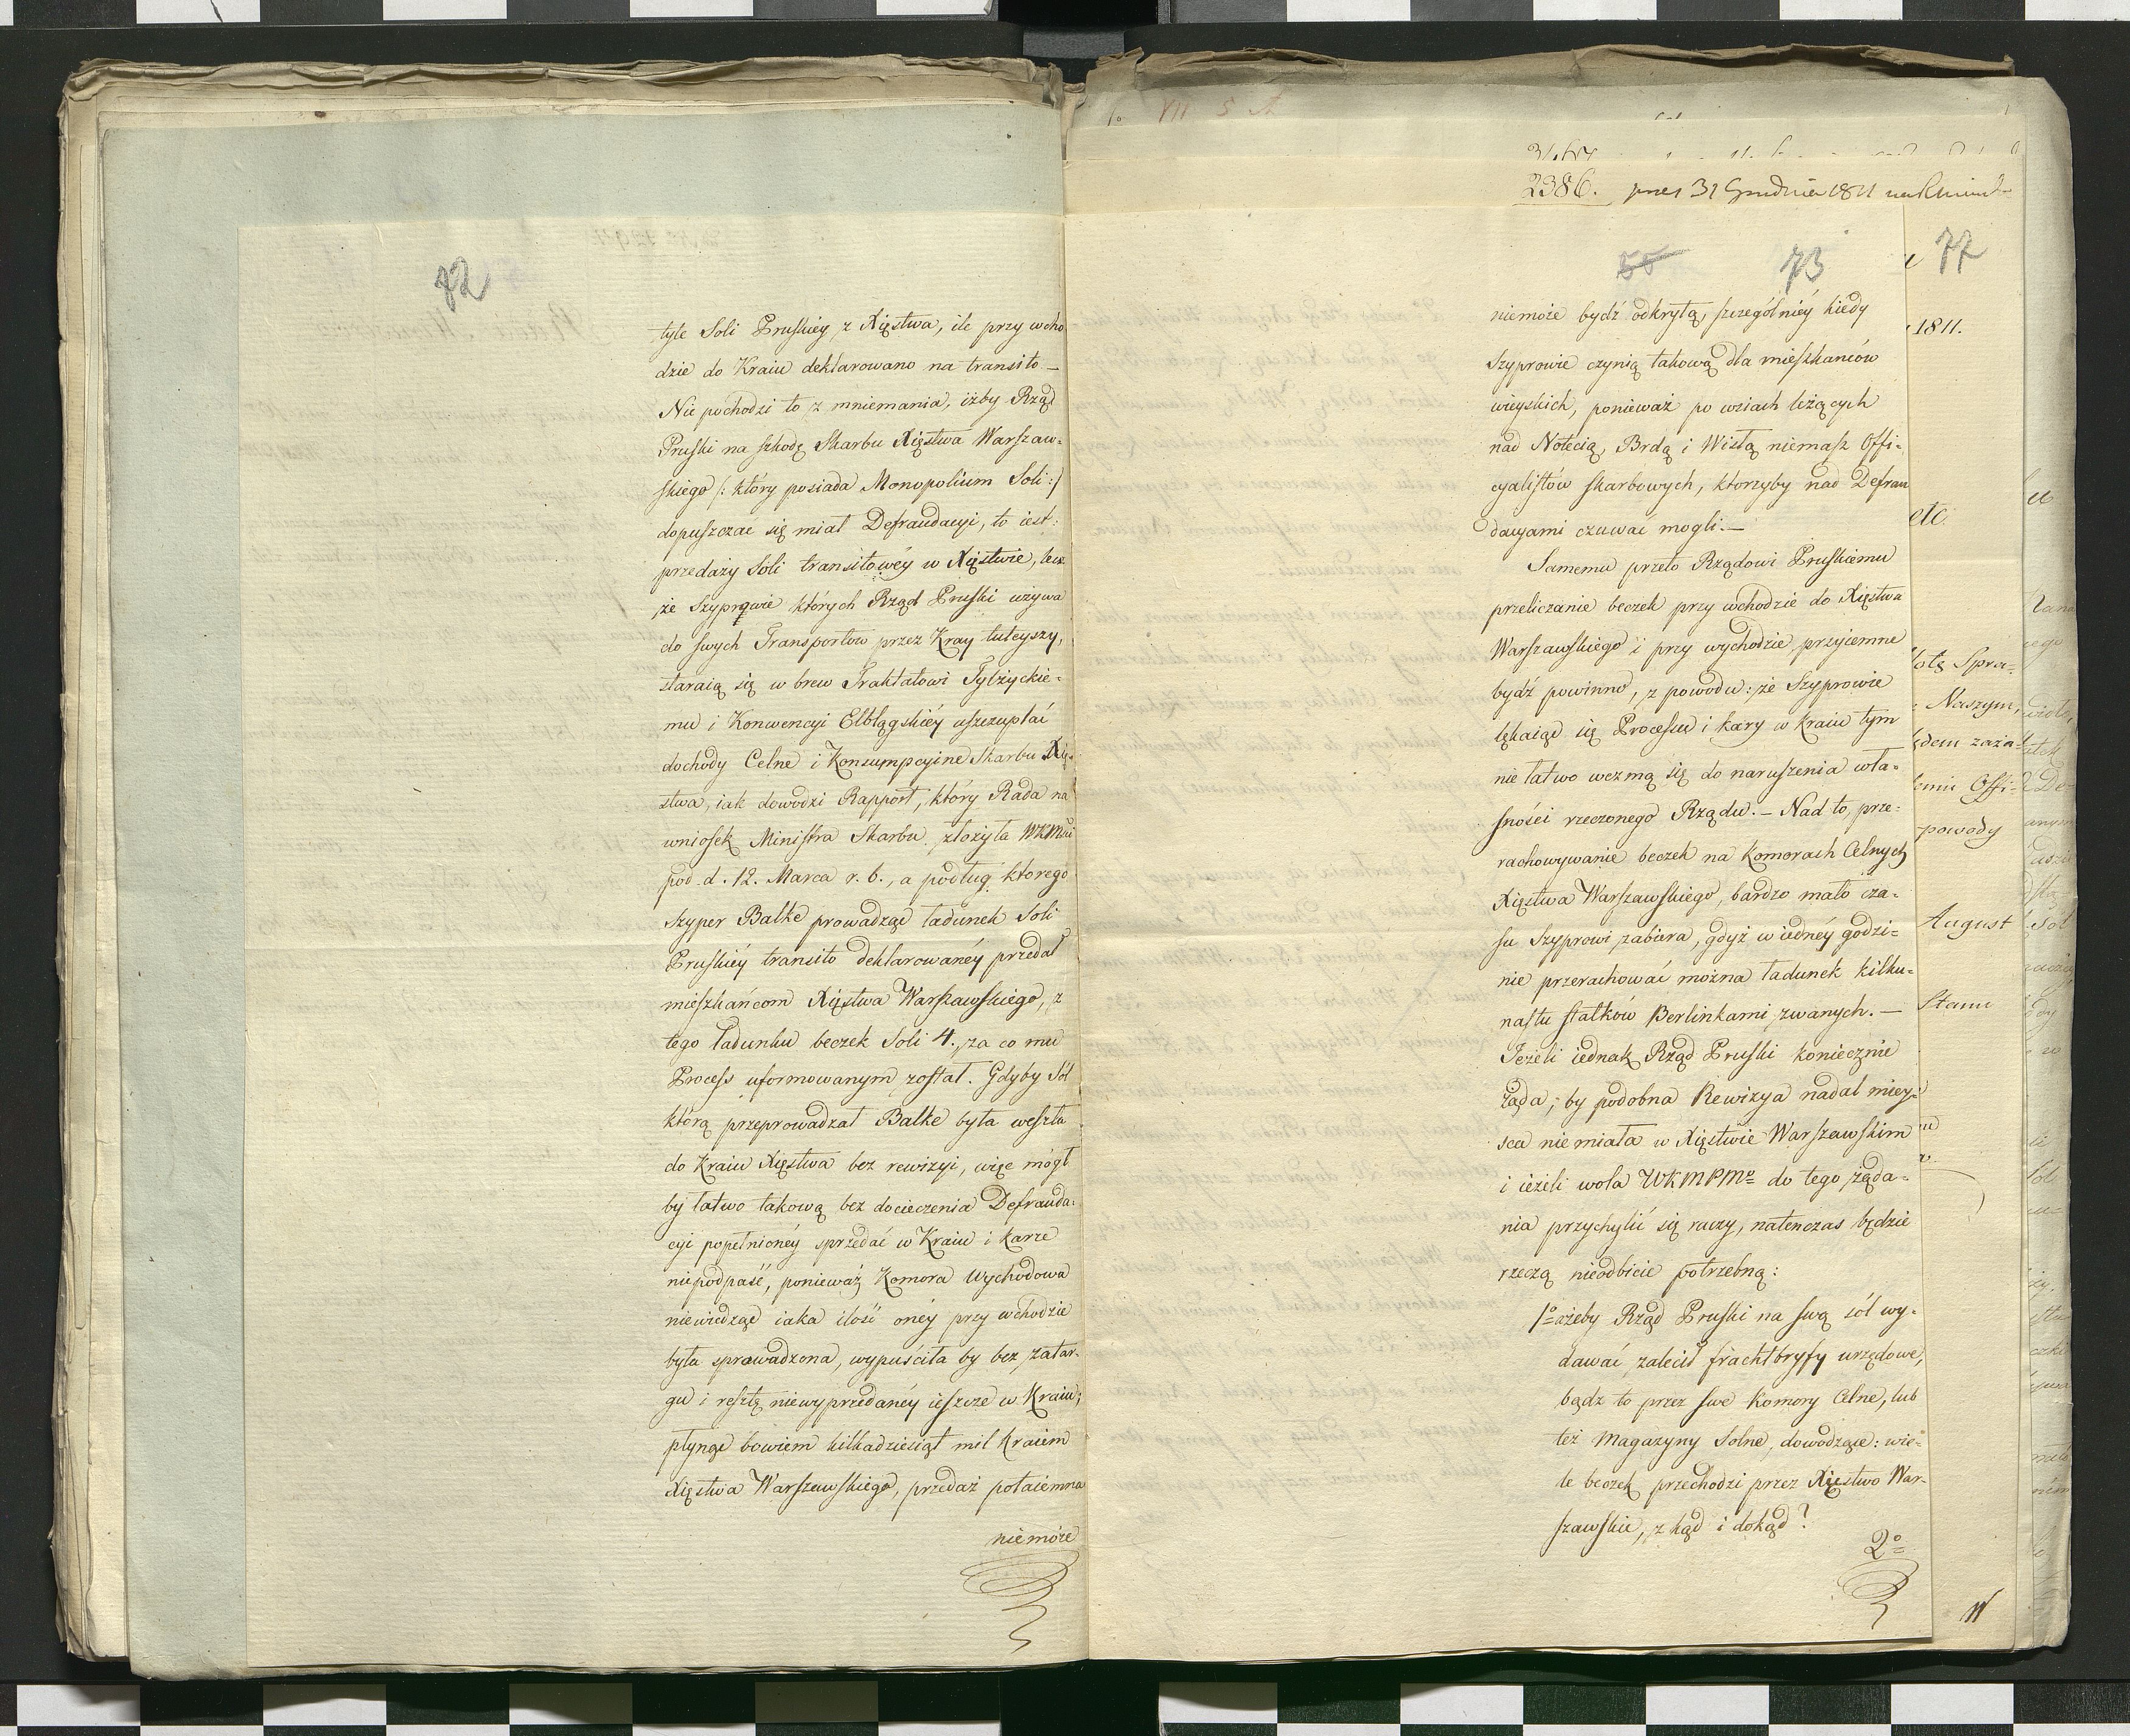 72
tyle Soli Pruskiey z Xięstwa, ile przy wcho
dzie do Kraiu deklarowano na transito —
Nie pochodzi to z mniemania, iżby Rząd
Pruski na szkodę Skarbu Xięstwa Warszaw-
skiego /: który posiada Monopolium Soli :/
dopuszczac się miał Defraudacyi, to iest:
przedaży Soli transitowéy w Xięstwie, lecz
że Szyprowie których Rząd Pruski używa
do swych Transportow przez Kray tuteyszy,
staraią się w brew Traktatowi Tylżyckie-
mu i Konwencyi Elbląskiéy uszczuplać
dochody Celne i Konsumpcyine Skarbu Xię-
stwa, iak dowodzi Rapport, który Rada na
wniosek Ministra Skarbu złożyła WKMci
pod d. 12. Marca r. b., a podług ktorego
Szyper Balke prowadząc ładunek Soli
Pruskiéy transito deklarowanéy przedał
mieszkańcom Xięstwa Warszawskiego, z
tego Ładunku beczek Soli 4., za co mu
Process uformowanym został. Gdyby Sól
którą przeprowadzał Balke była weszła
do Kraiu Xięstwa bez rewizyi, więc mógł
by łatwo takową bez docieczenia Defrauda-
cyi popełnionéy sprzedać w Kraiu i karze
niepodpaść, ponieważ Komora Wychodowa
niewiedząc iaka ilość onéy przy wchodzie
była sprowadzona, wypuściła by bez zatar-
gu i resztę niewyprzedanéy ieszcze w Kraiu;
płynąc bowiem kilkadziesiąt mil Kraiem
Xięstwa Warszawskiego, przedaż potaiemna
niemoże
2386. przes 31 Grudnia 1811
55 73
niemoże bydź odkrytą, szczególniéy kiedy
Szyprowie czynią takową dla mieszkańców
wieyskich, ponieważ po wsiach leżących
nad Notecią, Brdą i Wisłą niemasz Offi-
cyalistów skarbowych, ktorzyby nad Defrau
dacyami czuwać mogli. —
Samemu przeto Rządowi Pruskiemu
przeliczanie beczek przy wchodzie do Xięstwa
Warszawskiego i przy wychodzie przyiemne
bydź powinno, z powodu: że Szyprowie
lękaiąc się Processu i kary w kraiu tym
nie łatwo wezmą się do naruszenia wła-
sności rzeczonego Rządu. — Nad to, prze-
rachowywanie beczek na Komorach Celnych
Xięstwa Warszawskiego, bardzo mało cza-
su Szyprowi zabiera, gdyż w iednéy godzi-
nie przerachować można ładunek kilku-
nastu statków Berlinkami zwanych. —
Jeżeli iednak Rząd Pruski koniecznie
żąda, by podobna Rewizya nadal miey-
sca nie miała w Xięstwie Warszawskim
i ieżeli wola WKMPMo do tego żąda-
nia przychylić się raczy, natenczas będzie
rzeczą nieodbicie potrzebną:
1o ażeby Rząd Pruski na swą sól wy-
dawać zalecił frachtbryfy urzędowe,
bądz to przez swe Komory Celne, lub
też Magazyny Solne, dowodzące: wie-
le beczek przechodzi przez Xięstwo War-
szawskie, z kąd i dokąd?
2o
77
1811.
etc
Naszym,
powody
August
Stanu